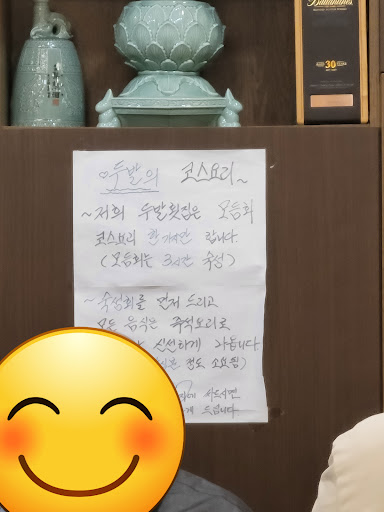 Ballantine's
AGED
30
YEARS
~두발의 코스요리~
~저희 두발횟집은 모듬회
코스요리 한가지만 합니다.
(모듬회는 3시간 숙성)
~숙성회를 먼저 드리고
모든 음식은 즉석요리로
신선하게 나옵니다
정도 소요됨)
드립니다